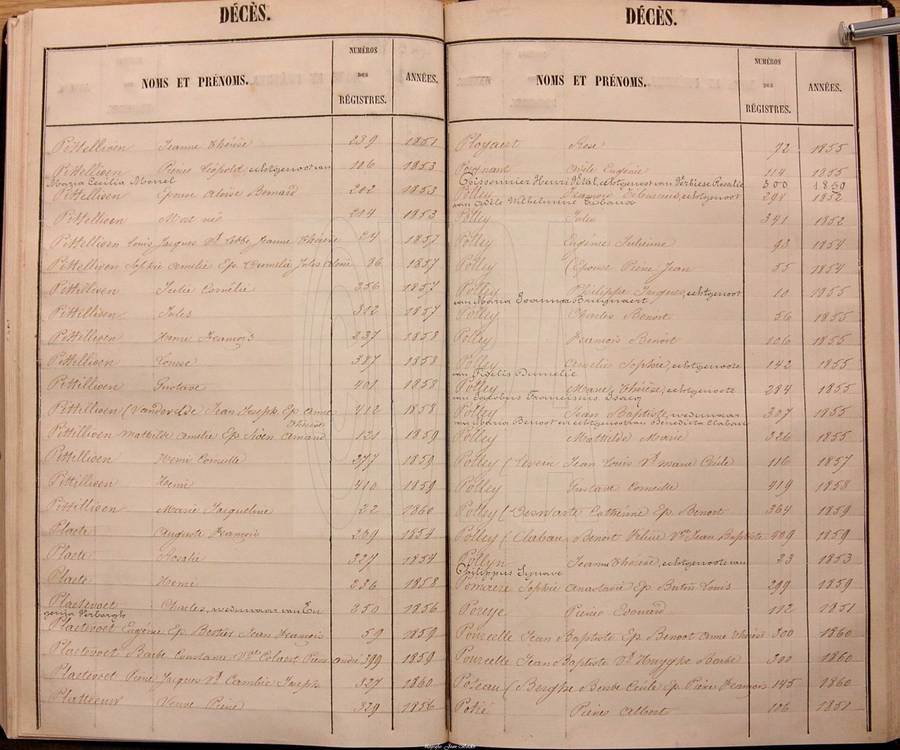 DÉCÈS.
NOMS ET PRÉNOMS. NUMÉROS DES RÉGISTRES. ANNÉES.
Pittellioen Jeanne Thérèse 239 1851
Pittellioen Pierre Léopold, echtgenoot van 106 1853
Maria Cecilia Monet
Pittellioen Eponne Aloise Bernard 202 1853
Pittellioen Mort né 204 1853
Pittellioen Louis Jacques Jeanne Thérèse 24 1857
Pittellioen Sophie Amélie Ep. Jules 86 1857
Pittellioen Julie Cornélie 256 1857
Pittellioen Jules 302 1857
Pittellioen Henri François 237 1858
Pittellioen Louise 387 1858
Pittellioen Gustave 401 1858
Pittellioen (Vandevelde Jean Joseph Ep. Anne 412 1858
Thérèse
Pittellioen Mathilde Amélie Ep. Amand 121 1859
Pittellioen Henri Corneille 377 1859
Pittellioen Henri 410 1859
Pittellioen Marie Jacqueline 22 1860
Plaete Auguste François 239 1854
Plaete Rosalie 327 1854
Plaete Henri 236 1858
Plaetevoet Charles, weduwaar van Eu 350 1856
genia Verburgh
Plaetevoet Eugénie Ep. Bertier Jean François 59 1859
Plaetevoet Barbe Constance Colaert Pierre André 399 1859
Plaetevoet Pierre Jacques Cambier Joseph 327 1860
Platteeuw Veuve Pierre 329 1856
DÉCÈS.
NOMS ET PRÉNOMS. NUMÉROS DES RÉGISTRES. ANNÉES.
Ployaert Rose 72 1855
Poignant Adèle Eugénie 114 1855
Coissonnier Henri Vital, echtgenoot van Verhiese Rosalie 300 1860
François, echtgenoot 298 1852
van Adèle Wilhelmine Clabaux
Polley Jules 341 1852
Polley Eugénie Julienne 93 1854
Polley (Epouse Pierre Jean 55 1854
Polley Philippe Jacques, echtgenoot 10 1855
van Maria Joanna Bruynaert
Polley Charles Benoit 56 1855
Polley François Benoit 106 1855
Polley Amélie Sophie, echtgenoote 142 1855
van Fidelis Dumelie
Polley Marie Thérèse, echtgenoote 284 1855
van Jacobus Franciscus Isacq
Polley Jean Baptiste, weduwaar 307 1855
van Maria Benoot en echtgenoot van Benedicta Clabau
Polley Mathilde Marie 326 1855
Polley (Severin Jean Louis Marie Cécile 116 1857
Polley Gustave Corneille 419 1858
Polley (Deswarte Cathérine Ep. Benoit 364 1859
Polley (Clabau Benoit Jean Baptiste 409 1859
Pollyn Jeanne Thérèse, echtgenoote van 23 1853
Philippus Lynave
Pomaere Sophie Anastasie Ep. Butin Louis 299 1859
Poreye Pierre Edouard 112 1851
Pourcelle Jean Baptiste Ep. Benoot Anne Thérèse 300 1860
Pourcelle Jean Baptiste Huyghe Barbe 300 1860
Poteau (Benghe Barbe Cécile Ep. Pierre François 145 1860
Potié Pierre Albert 106 1851